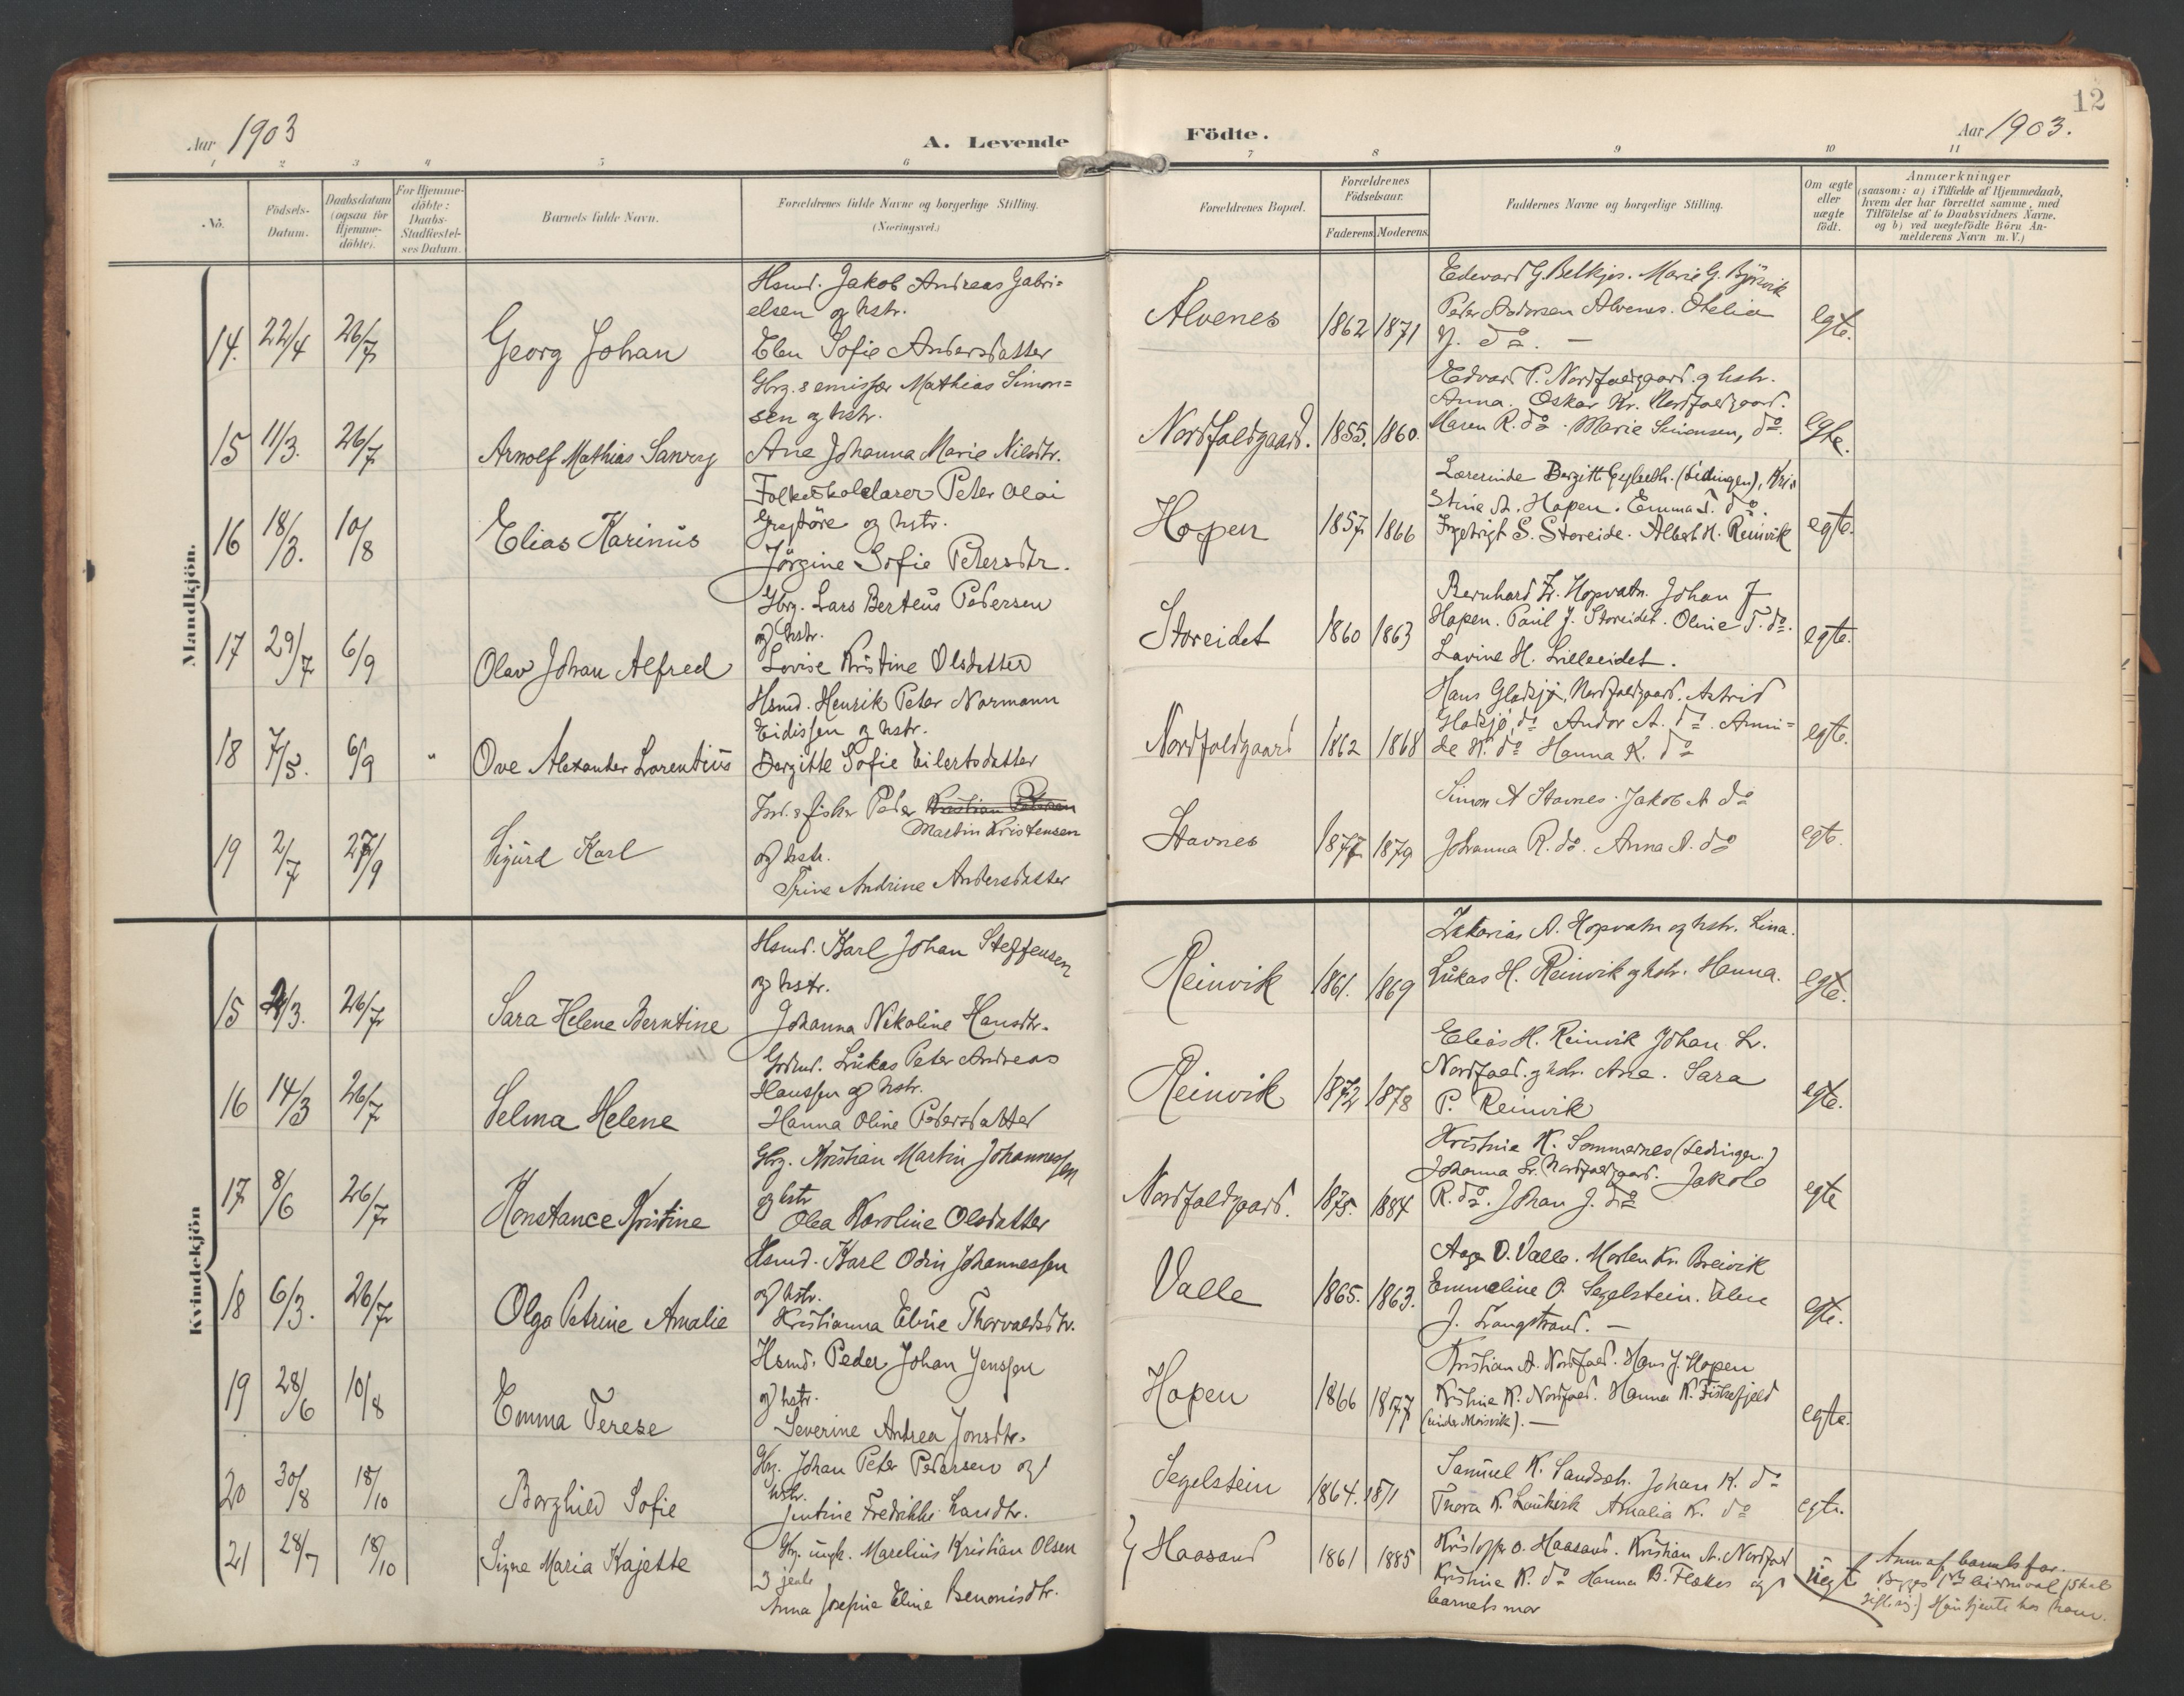 12
Aar 1903
A. Levende
Födte.
Aar 1903.
1 2 3 4 5 6 7 8 9 10 11
No.
Födsels-Datum.
Daabsdatum (ogsaa for Hjemme-döbte).
For Hjemme-döbte: Daabs-Stadfæstel-ses Datum.
Barnets fulde Navn.
Forældrenes fulde Navne og borgerlige Stilling. (Næringsvei.)
Forældrenes Bopæl.
Forældrenes Födselsaar.
Faderens. Moderens.
Faddernes Navne og borgerlige Stilling.
Om ægte eller uægte födt.
Anmærkninger
(saasom: a) i Tilfælde af Hjemmedaab, hvem der har forrettet samme, med Tilföielse af to Daabsvidners Navne. og b) ved uægtefödte Börn An-melderens Navn m. V.)
Mandkjön.
14. 22/4 26/7 Georg Johan
Hsmd. Jakob Andreas Gabri=
elsen og hstr.
Elen Sofie Andersdatter
Alvenes 1862 1871
Edevard G. Belkjos. Marie G. Björnvik
Peder Andersen Alvenes. Otelia
J. do. —
egte.
15 11/3. 26/7 Arnolf Mathias Sanvig
Gbrg. & emissær Mathias Simon=
sen og hstr.
Ane Johanna Marie Nilsdtr.
Nordfoldgaard. 1855. 1860.
Edvard P. Nordfoldgaard og hstr.
Anna. Oskar Kr. Nordfoldgaard.
Maren R. do. Marie Simonsen, do.
egte.
16 18/3. 10/8 Elias Karinus
Folkeskolelærer Peter Olai
og hstr.
Jörgine Sofie Petersdtr.
Hopen 1857 1866
Lærerinde Bergitt (Ledingen), Kri
stine A. Hopen. Emma J. do.
Ingebrigt S. Storeide. Albert H. Reinvik
egte.
17 29/7 6/9 Olav Johan Alfred
Gbrg. Lars Berteus Pedersen
og hstr.
Lovise Kristine Olsdatter
Storeidet 1860 1863
Bernhard Z. Hopvatn. Johan J
Hopen. Paul J. Storeidet. Oline T. do.
Lavine H. Lilleeidet.
egte.
18 7/5. 6/9 " Ove Alexander Lorentius
Hsmd. Henrik Peter Normann
Eidissen og hstr.
Bergitte Sofie Eilertsdatter
Nordfoldgaard 1862 1868
Hans Gladsjø, Nordfoldgaard. Astrid
Gladsjø, do Andor A. do. Armi=
de K. do Hanna K. do
egte.
19 2/7 27/9 Sigurd Karl
Ind. & fisker Peder Kristian Pedersen
Martin Kristensen
og hstr.
Trine Andrine Andersdatter
Stavnes 1877 1879
Simon A Stavnes. Jakob A do
Johanna R. do. Anna A. do
egte.
Kvindekjön
15 /3. 26/7 Sara Helene Berntine
Hsmd. Karl Johan Steffensen
og hstr.
Johanna Nikoline Hansdtr.
Reinvik 1861. 1869
Zakarias A. Hopvatn og hstr. Lina.
Lukas H. Reinvik og hstr. Hanna.
egte.
16 14/3 26/7 Selma Helene
Grdmd. Lukas Peter Andreas
Hanssen og hstr.
Hanna Oline Pedersdatter
Reinvik 1872 1878
Elias H. Reinvik Johan L.
Nordfold. og hstr. Ane. Sara
P. Reinvik
egte.
17 8/6 26/7 Konstance Kristine
Gbrg. Kristian Martin Johannessen
og hstr
Olea Karoline Olsdatter
Nordfoldgaard. 1875. 1884
Kristine K. Sommernes (Ledingen.)
Johanna L. Nordfoldgaard. Jakob
R. do. Johan J. do
egte
18 6/3. 26/7 Olga Petrine Amalie
Hsmd. Karl Odin Johannessen
og hstr.
Kristianna Eline Thorvaldsdtr.
Valle 1865. 1863.
Aage O. Valle. Morten Kr. Breivik
Emmeline O. Segelstein. Eline
J. Langstrand. —
egte.
19 28/6 10/8 Emma Terese
Hsmd. Peder Johan Jenssen
og hstr.
Severine Andrea Jonsdtr.
Hopen 1866 1877
Kristian A. Nordfold. Hans J. Hopen
Kristine K. Nordfold. Hanna K. Fiskefjeld
(under Moisvik). —
egte.
20 30/8 18/10 Borghild Sofie
Gbrg. Johan Peter Pedersen og
hstr.
Jentine Fredrikke Larsdtr.
Segelstein 1864. 1871
Samuel K. Landsch. Johan K. do
Thora K. Laukisk Amalia K. do
egte.
21 28/7 18/10 Signe Maria Kajette
Gbrg. ungk. Marelius Kristian Olsen
og
Anna Josefine Eline Benonisdtr.
Haasand 1861 1885
Kristoffer O. Haasand. Kristian A. Nordfold
Kristine K. do Hanna B. Flekes og
barnets mor
uegte
Anm. af barnets far.
Begges 1ste leiermaal (skal
giftes.) Hun tjente hos ham.